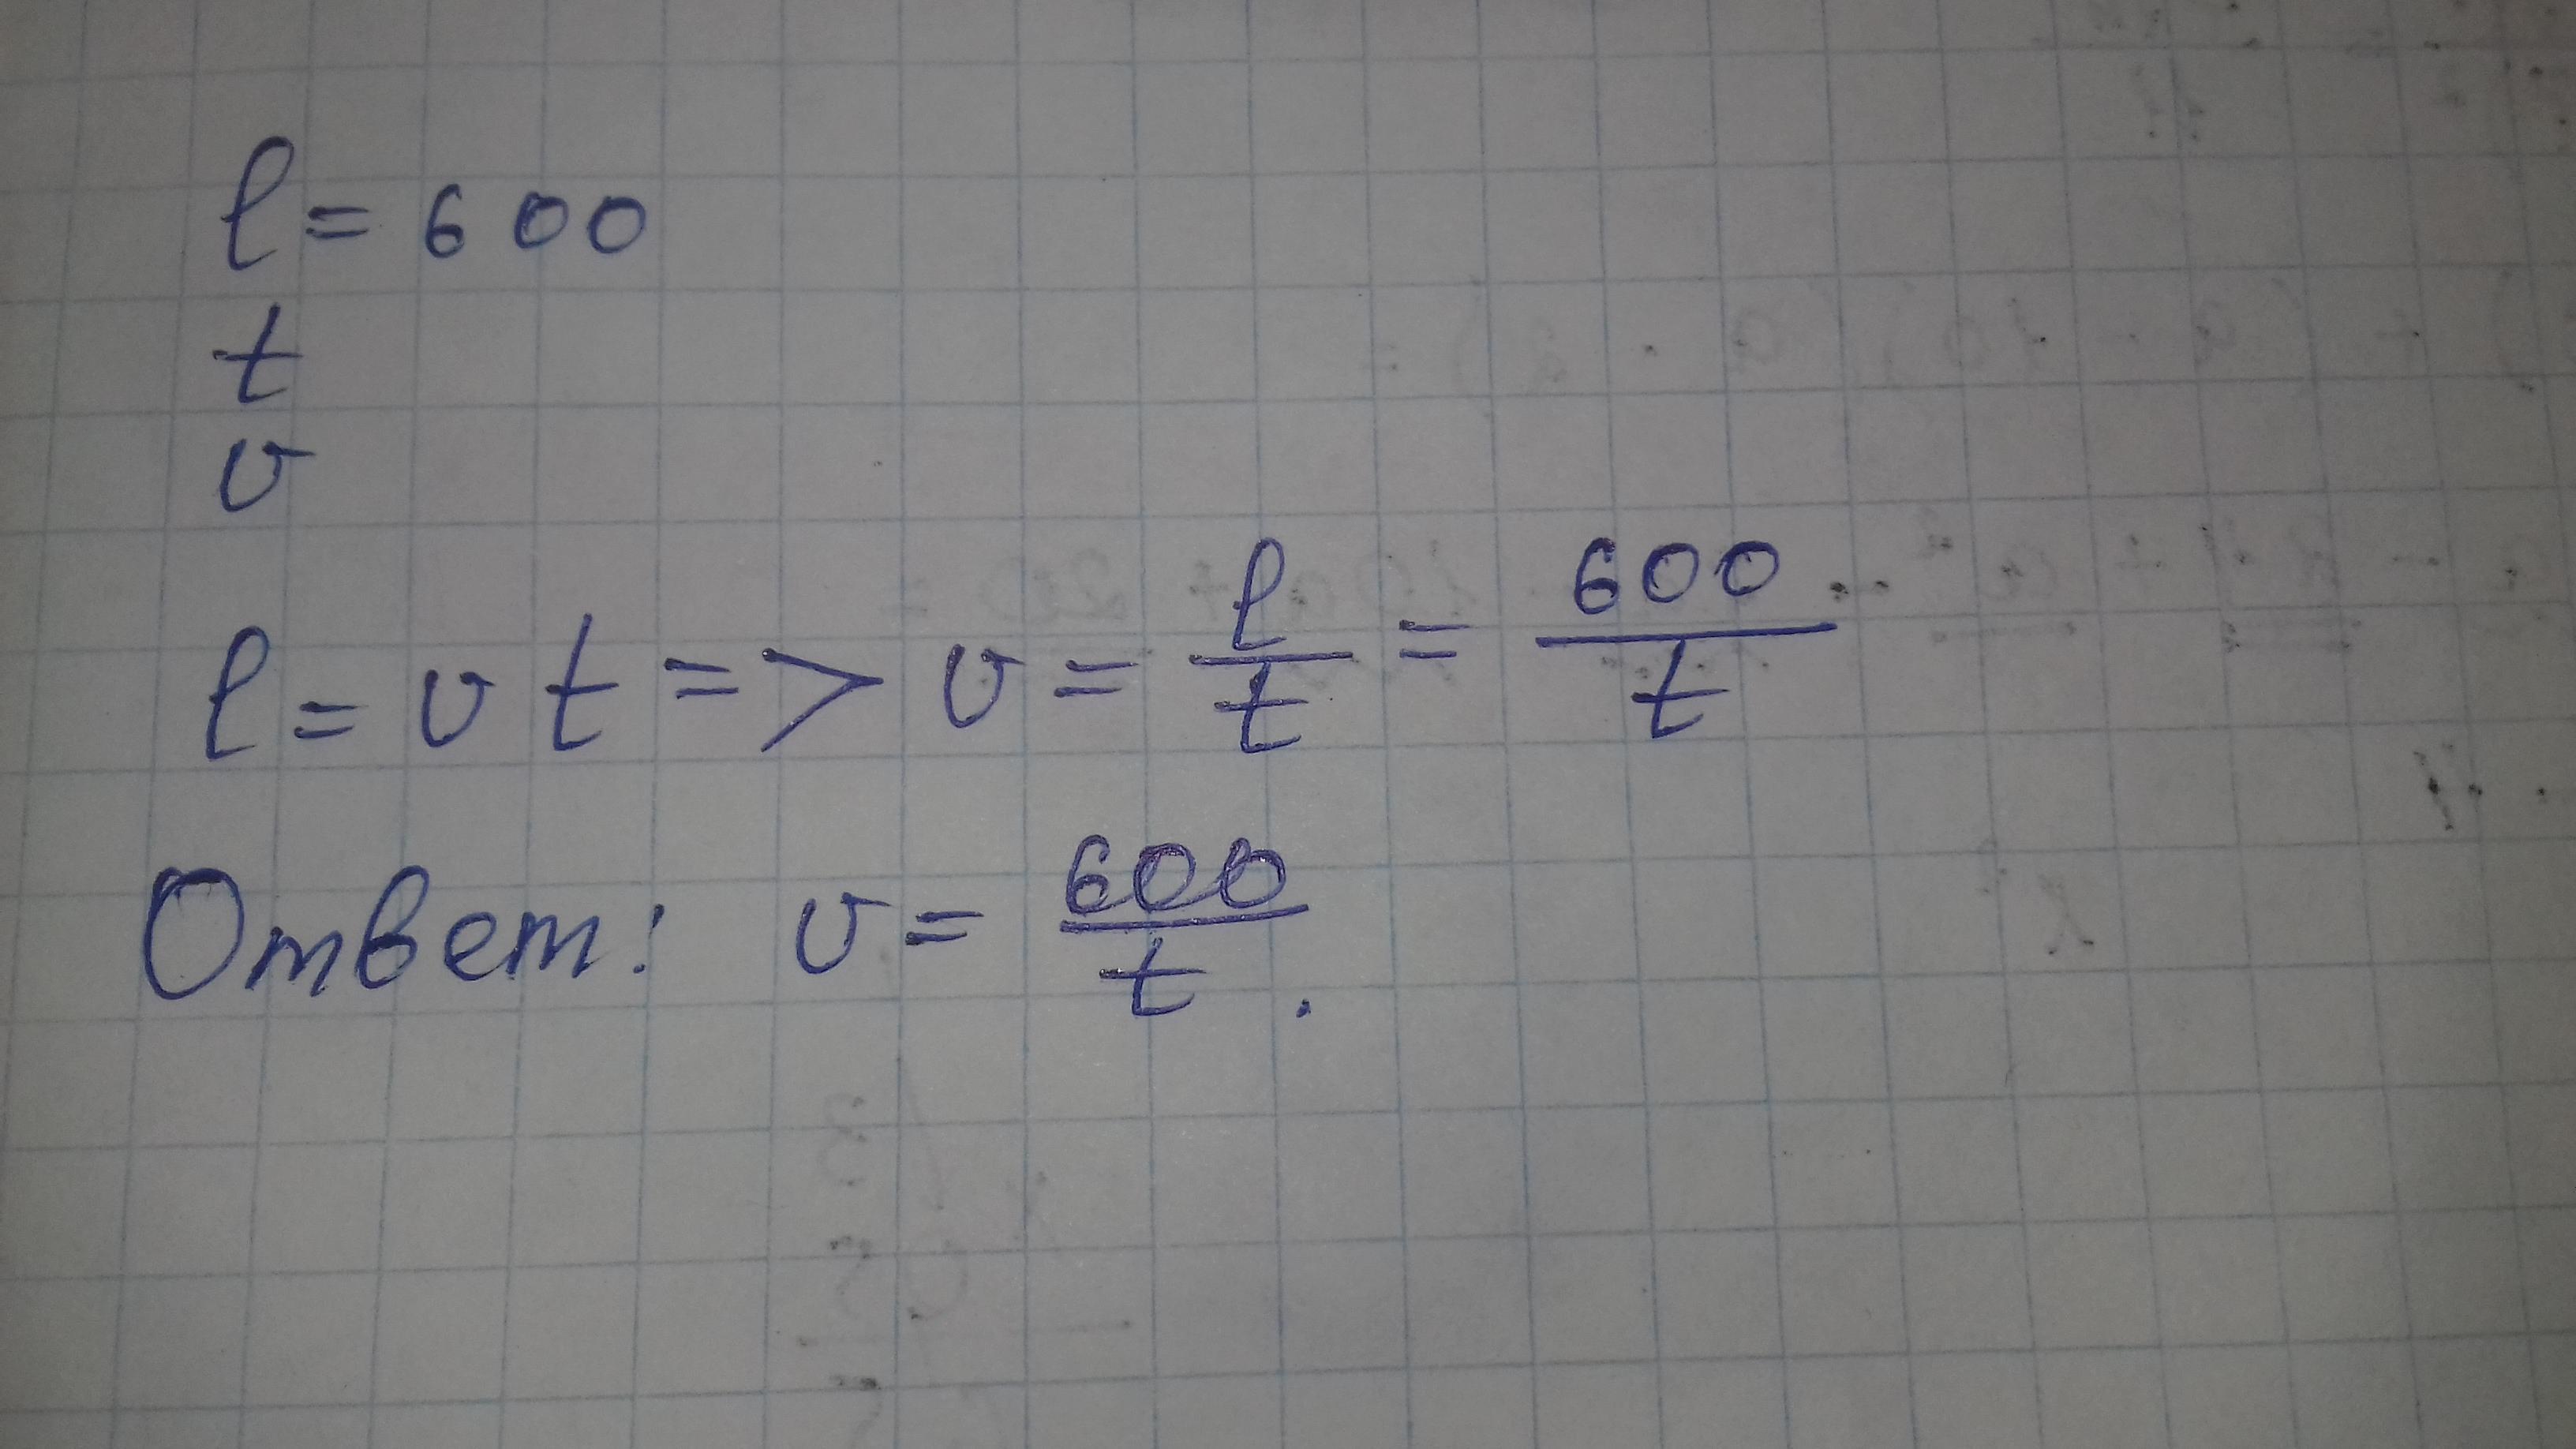 l = 600
t
v
l = v t => v = l/t = 600/t
Ответ: v = 600/t .